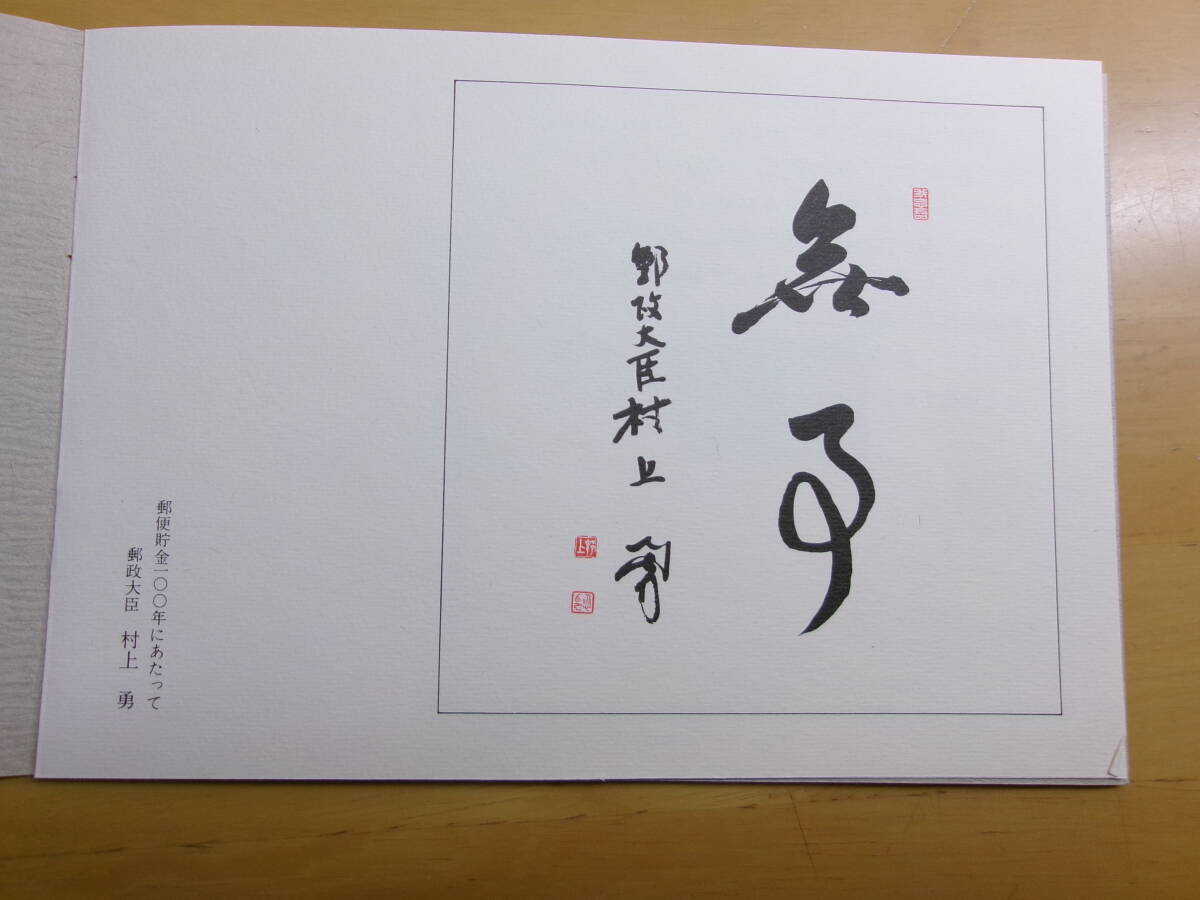 無事
郵政大臣村上勇
郵便貯金一〇〇年にあたって
郵政大臣 村上 勇